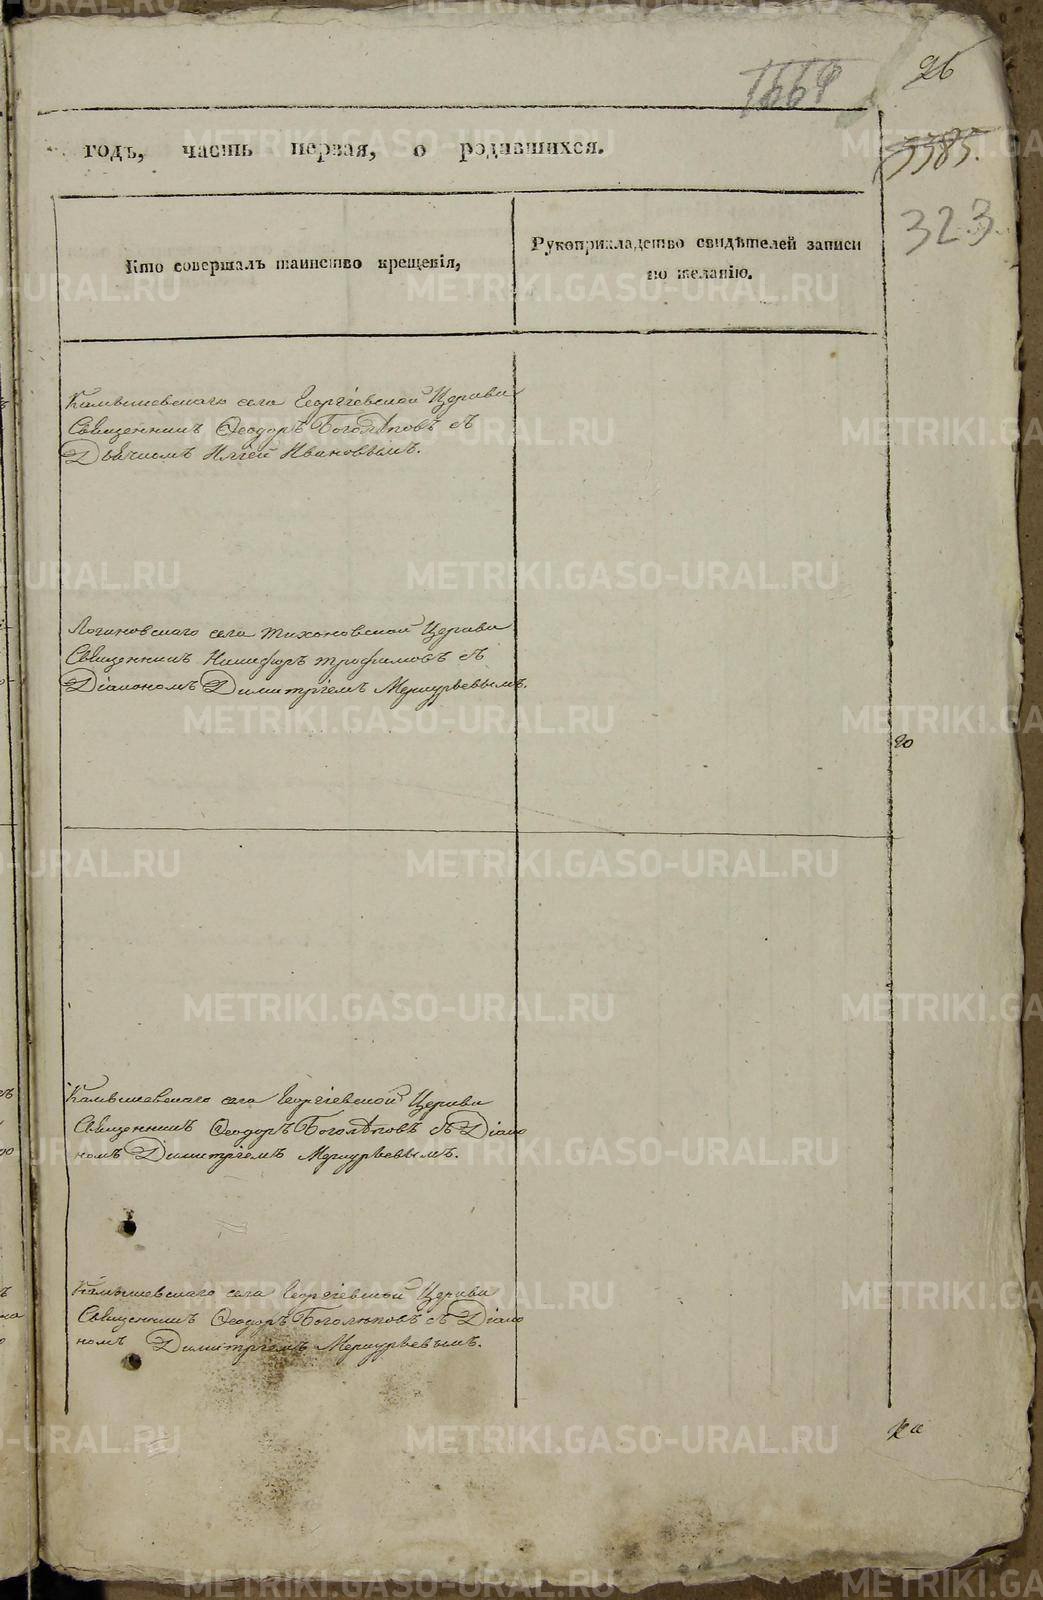 26
1664
3385.
323
годъ, часть первая, о родившихся.
Кто совершалъ таинство крещенія,
Рукоприкладство свидѣтелей записи
по желанію.
Камышевскаго села Георгіевской Церкви
Священникъ Ѳеодоръ Боголѣповъ съ
Дьячкомъ Иліей Ивановымъ.
Логиновскаго села Тихоновской Церкви
Священникъ Никифоръ Трофимовъ съ
Діакономъ Димитріемъ Меркурьевымъ.
Камышевскаго села Георгіевской Церкви
Священникъ Ѳеодоръ Боголѣповъ съ Діако
номъ Димитріемъ Меркурьевымъ.
Камышевскаго села Георгіевской Церкви
Священникъ Ѳеодоръ Боголѣповъ съ Діако
номъ Димитріемъ Меркурьевымъ.
METRIKI.GASO-URAL.RU